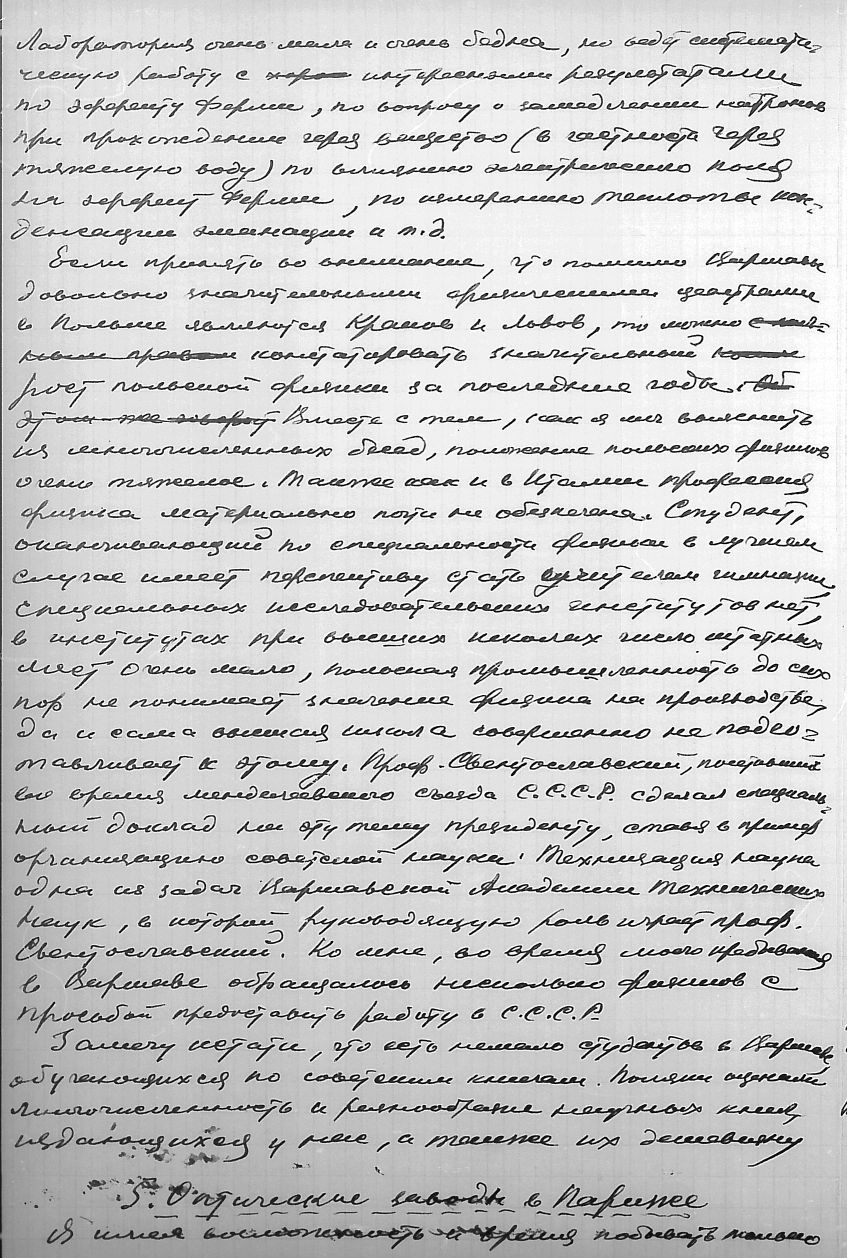 Лаборатория очень мала и очень бедна, но ведет системати-
ческую работу с интересными результатами
по эффекту Ферми, по вопросу о замедлении нейтронов
при прохождении через вещество (в частности через
тяжелую воду) по влиянию электрического поля
на эффект Ферми, по измерению теплоты кон-
денсации эманации и т.д.
Если принять во внимание, что помимо Варшавы
довольно значительными физическими центрами
в Польше являются Краков и Львов, то можно с пол-
ным правом констатировать значительный
рост польской физики за последние годы. Об
этом же говорит Вместе с тем, как я мог выяснить
из многочисленных бесед, положение польских физиков
очень тяжелое. Также как и в Италии профессия
физика материально почти не обеспечена. Студент,
оканчивающий по специальности физики в лучшем
случае имеет перспективу стать учителем гимназии,
специальных исследовательских институтов нет,
в институтах при высших школах число штатных
мест очень мало, польская промышленность до сих
пор не понимает значение физика на производстве,
да и сама высшая школа совершенно не подго-
тавливает к этому. Проф. Свентославский, посетивший
во время менделеевского съезда С.С.С.Р. сделал специаль-
ный доклад на эту тему президенту, ставя в пример
организацию советской науки. Технизация науки
одна из задач Варшавской Академии Технических
Наук, в которой руководящую роль играет проф.
Свентославский. Ко мне, во время моего пребывания
в Варшаве обращалось несколько физиков с
просьбой предоставить работу в С.С.С.Р.
Замечу кстати, что есть немало студентов в Варшаве,
обучающихся по советским книгам. Поляки оценили
многочисленность и разнообразие научных книг,
издающихся у нас, а также их дешевизну
5. Оптические заводы в Париже
Я имел возможность и время побывать только